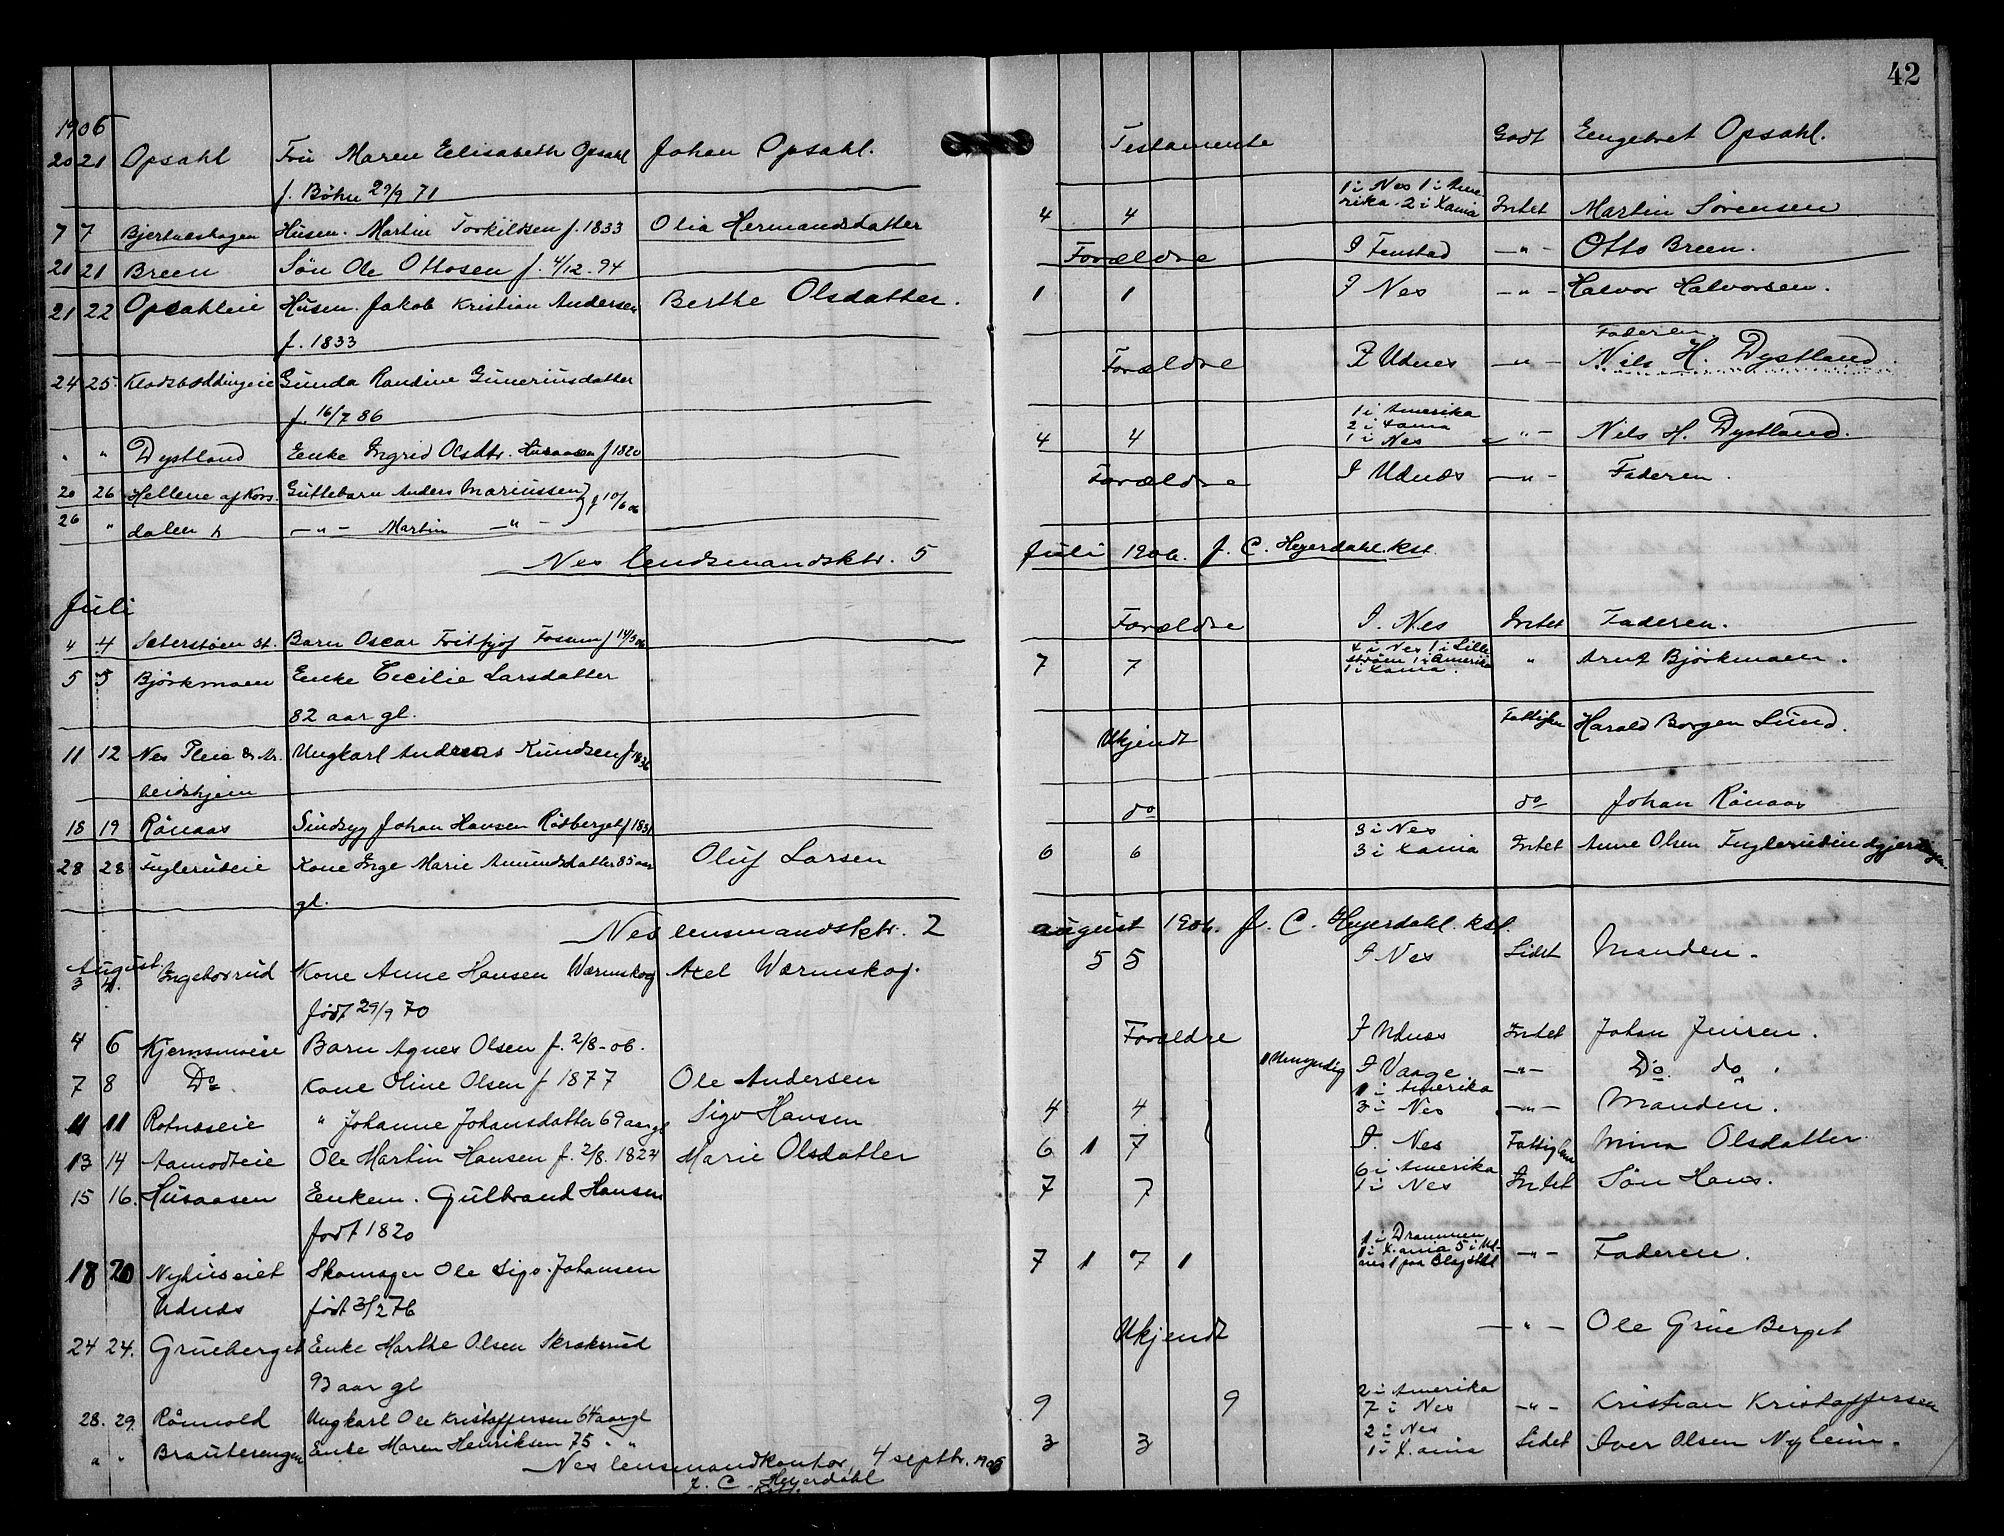 42
1906
20 21 Opsahl Fru Maren Elisabeth Opsahl Johan Opsahl. Testamente Godt Engebret Opsahl.
f. Bøhn 29/9 71
7 7 Husm. Martin Torkildsen f. 1833 Olia Hermandsdatter 4 4 1 i Nes 1 i Ame-
rika. 2 i Xania Intet Martin Sørensen
21 21 Breen Søn Ole Ottosen f. 4/12-94 Forældre I Fenstad -"- Otto Breen.
21 22 Opsahleie Husm. Jakob Kristian Andersen Berthe Olsdatter. 1 1 I Nes -"- Halvor Halvorsen.
f. 1833
24 25. Gunda Randine Guneriusdatter Forældre I Udnes -"- Faderen
Nils H. Dystland.
f. 16/7 86
" " Dystland Enke Ingrid Olsdtr. Husaasen f 1820 4 4 1 i Amerika
2 i Xania
1 i Nes -"- Nils H. Dystland.
20 26 Hellene af Kors- Guttebarn Anders Mariussen } f 10/6 06 Forældre I Udnes -"- Faderen.
26 " dalen -"- Martin -"-
Nes lendsmandsktr. 5 Juli 1906. J. C. Heyerdahl. kst.
Juli
4 4 Sæterstøen st. Barn Oscar Frithjof Fossum f 14/3 06 Forældre I. Nes Intet Faderen.
5 5 Bjørkmoen Enke Cecilie Larsdatter 7 7 4 i Nes 1 i Lille-
strøm 1 i Amerika
1 i Xania. " Arnt Bjørkmoen.
82 aar gl.
11 12 Nes Pleie & Ar- Ungkarl Andreas Knudsen f 1836 Ukjendt Fattiglem Harald Borgen Lund.
beidshjem
18 19 Rønaas Sindsyg Johan Hansen Rødberget f 1831 do do Johan Rønaas
28 28 Fuglerudeie Kone Inge Marie Amundsdatter 85 aar Oluf Larsen 6 6 3 i Nes
3 i Xania Intet Anne Olsen
gl.
Nes lensmandsktr. 2 august 1906. J. C. Heyerdahl. kst.
August.
3 4. Ingeborrud Kone Anne Hansen Wærmskog Axel Wærmskog. 5 5 I Nes Lidet Manden.
født 29/9 70
4 6 Barn Agnes Olsen f. 2/8-06. Forældre I Udnes Intet Johan Jensen.
7 8 Do. Kone Oline Olsen f 1877 Ole Andersen 1 Umyndig I Vaage -"- Do. do.
11 11 Rotnæseie " Johanne Johansdatter 69 aar gl Sigv Hansen 4 4 1 i Amerika
3 i Nes -"- Manden.
13 14 Aamodteie Ole Martin Hansen f. 2/8. 1824 Marie Olsdatter 6 1 7 I. Nes Fattiglem Mina Olsdatter.
15 16. Husaasen Enkem. Gulbrand Hansen 7 7 6 i Amerika
1 i Nes Intet Søn Hans.
født 1820
18 20 Nyhuseiet Skomager Ole Sigv. Johansen 7 1 7 1 1 i Drammen
1 i X.ania 5 i Ud-
nes 1 paa -"- Faderen.
Udnes født 3/2 76
24 24. Grueberget Enke Marthe Olsen Skrakerud Ukjendt -"- Ole Grue Berget
93 aar gl
28. 29. Rømvold Ungkarl Ole Kristoffersen 64 aar gl 9 9 2 i Amerika
7 i Nes -"- Kristian Kristoffersen
" " Brauterengen Enke Maren Henriksen 75 " " 3 3 2 i Nes
1 i X.ania Lidet Iver Olsen Nyleim.
Nes lensmandkontor, 4 septbr. 1906
J. C. Heyerdahl